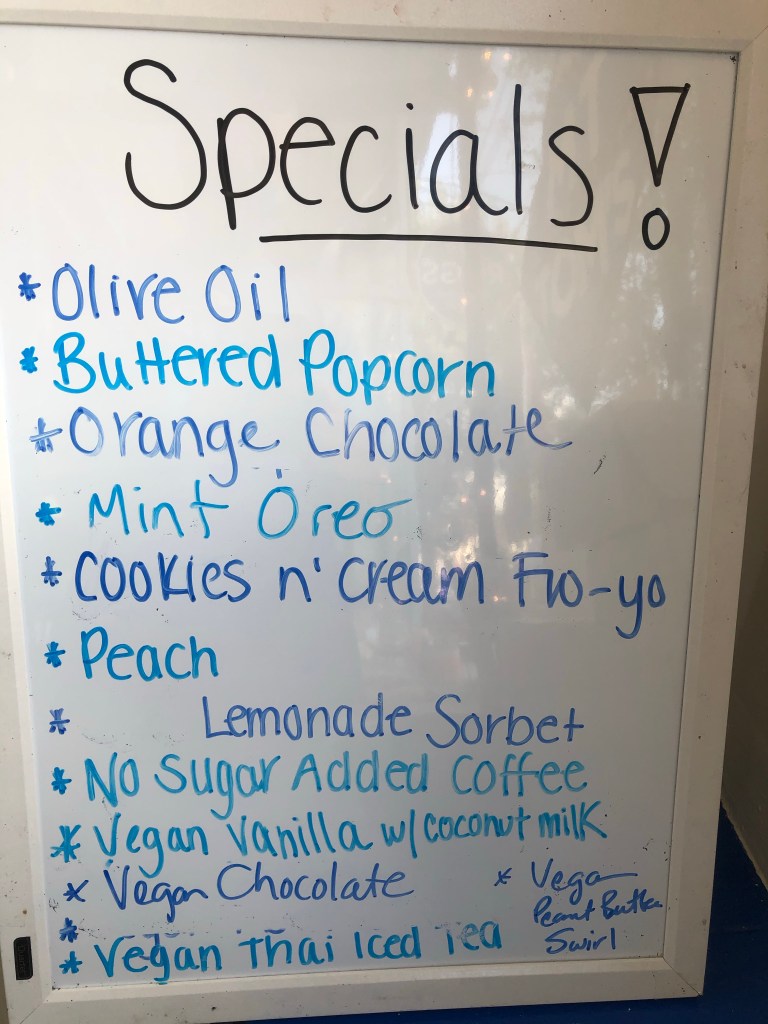 Specials!
* Olive Oil
* Buttered Popcorn
* Orange Chocolate
* Mint Oreo
* Cookies n' Cream Fro-yo
* Peach
* Lemonade Sorbet
* No Sugar Added Coffee
* Vegan Vanilla w/ coconut milk
* Vegan Chocolate
* Vegan
Peanut Butter
Swirl
*
* Vegan Thai Iced Tea